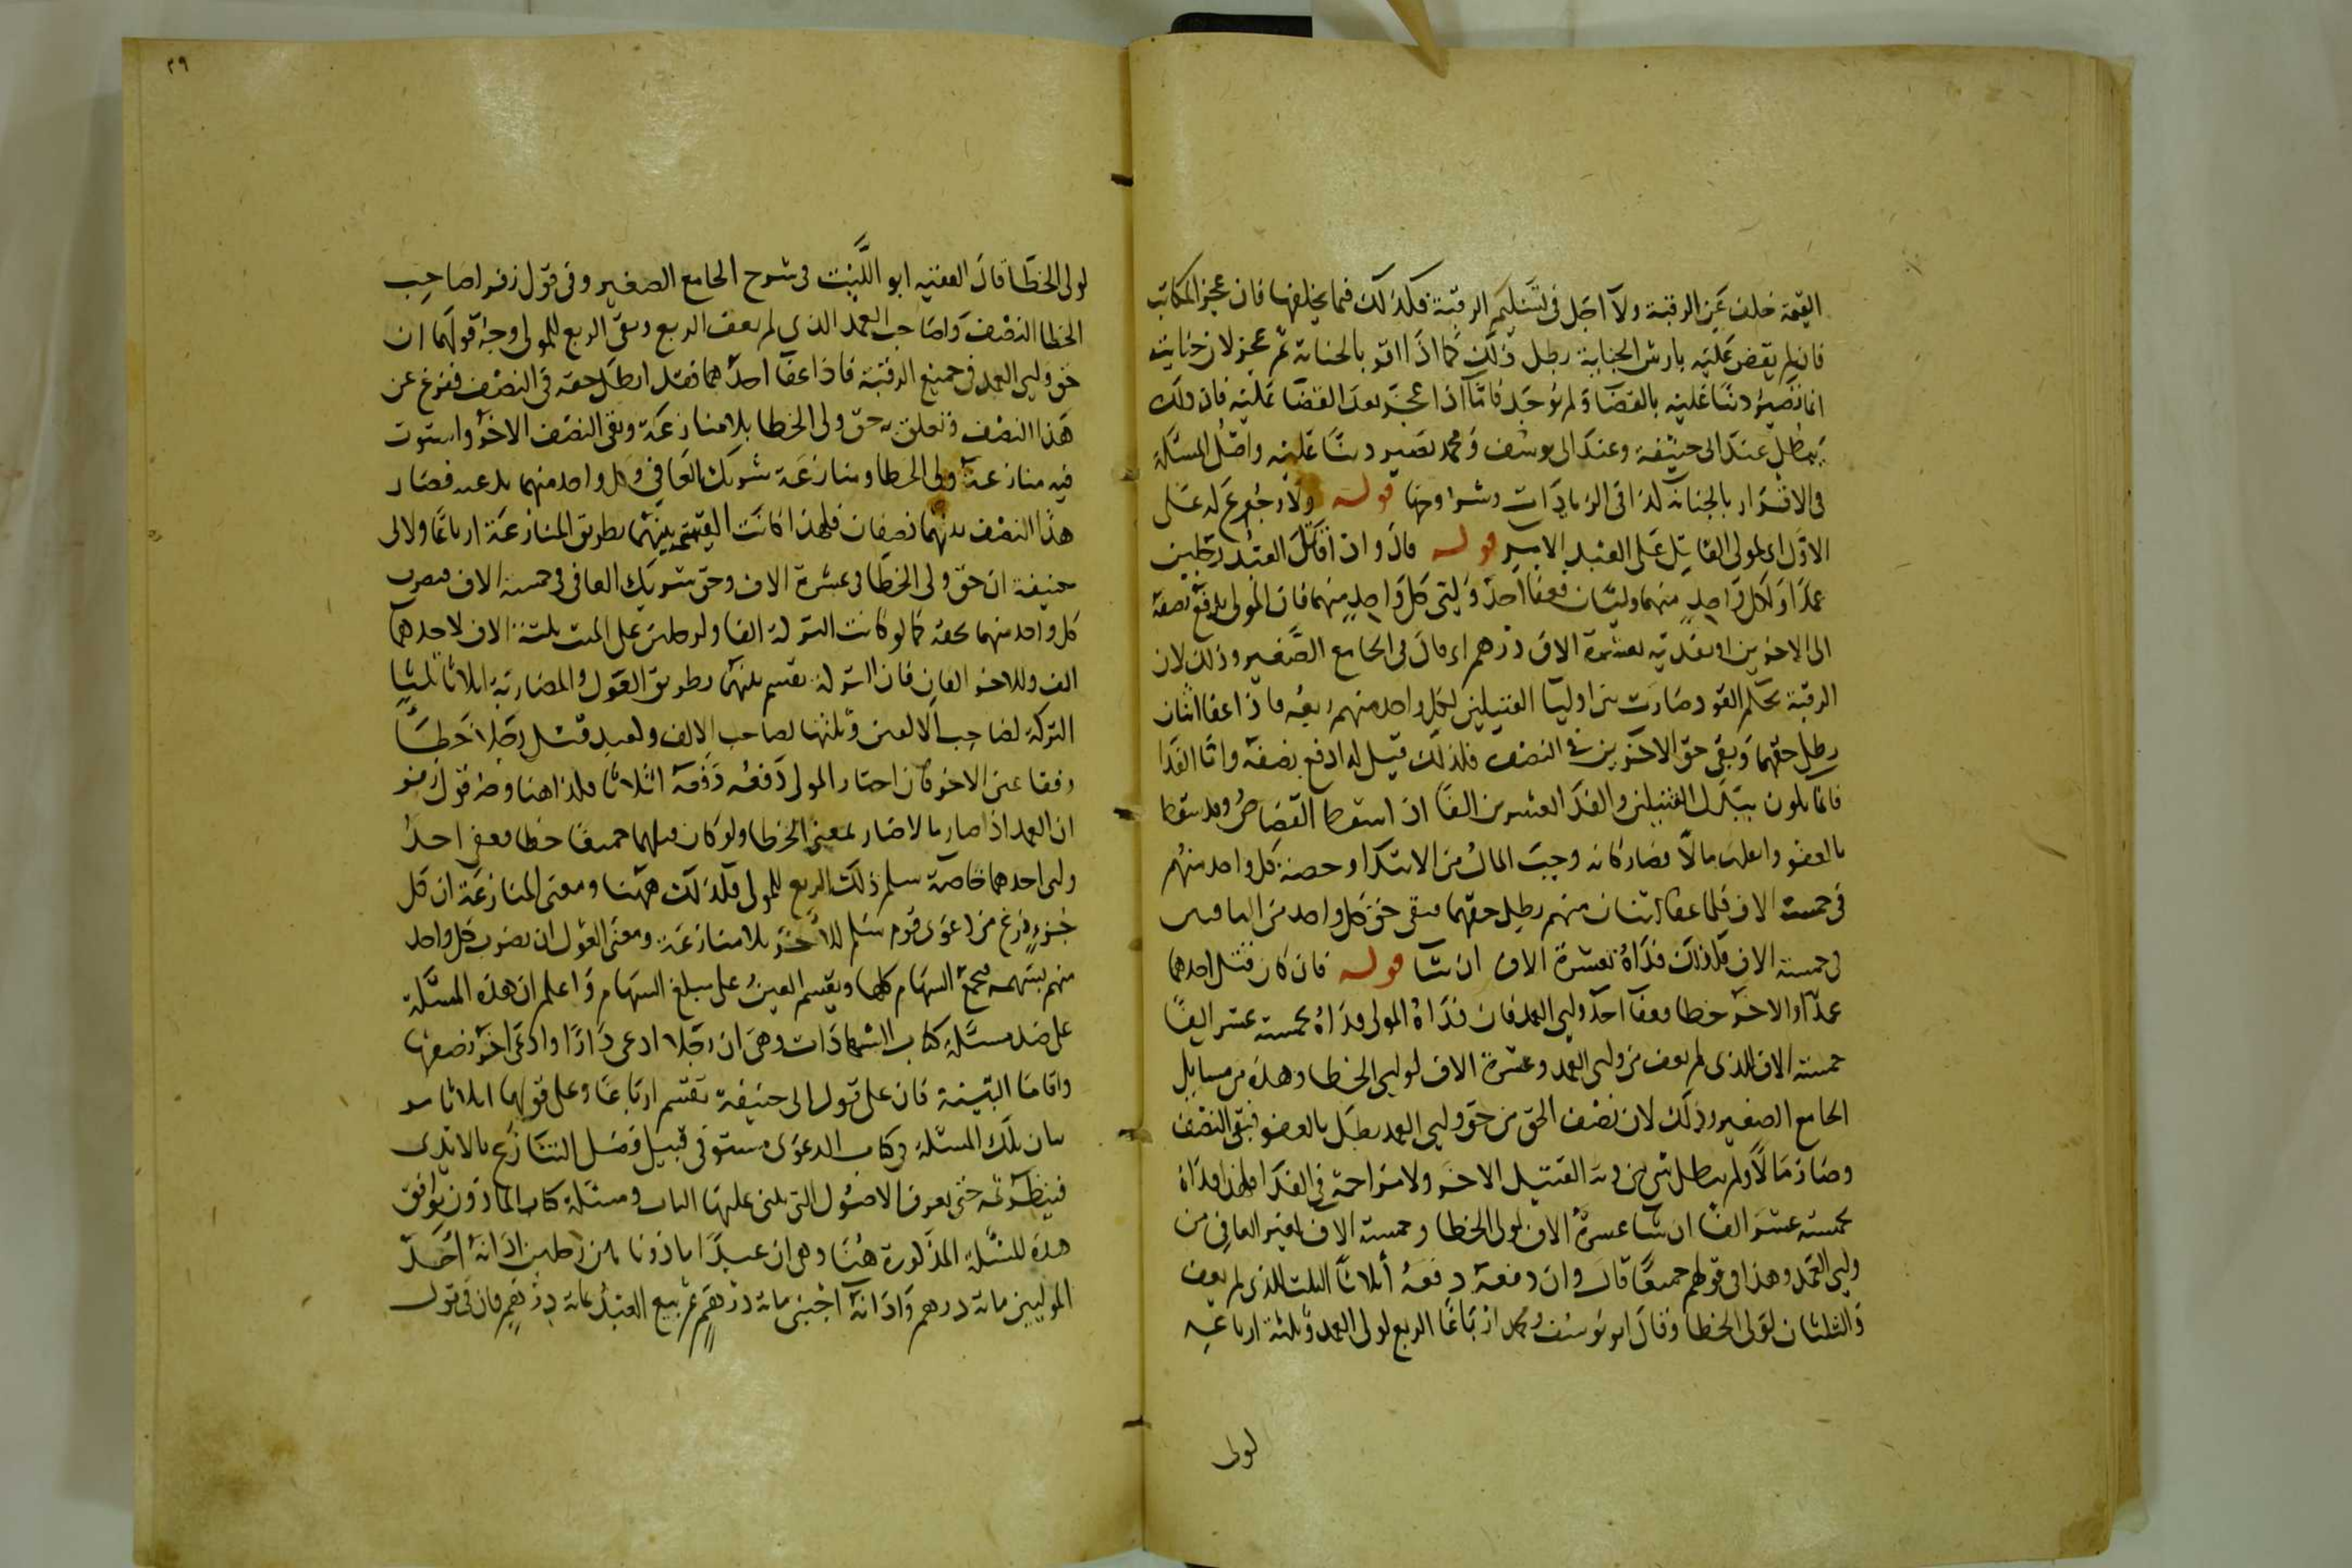 القيمة خلف عن الرقبة ولا اجل فى تسليم الرقبة فكذلك فيما يخلفها فان عجز المكاتب
فان لم يقض عليه بارش الجناية بطل ذلك كما اذا اقر بالجناية ثم عجز لان جنايته
انما تصير دينا عليه بالقضا ولم يوجد فاما اذا عجز بعد القضا عليه فان ذلك
يبطل عند ابى حنيفة وعند ابى يوسف ومحمد تصير دينا عليه واصل المسئلة
فى الاقرار بالجناية كذا فى الزيادات وشروحها قوله ولا رجوع له على
الاول اى لمولى القاتل على العبد الاسير قوله قال وان قتل العبد رجلين
عمدا ولكل واحد منهما وليان فعفا احد وليى كل واحد منهما فان المولى يدفع نصفه
الى الاخرين او يفديه بعشرة الاف درهم اى قال فى الجامع الصغير وذلك لان
الرقبة بحكم القود صارت بين اوليا القتيلين لكل واحد منهم ربعه فاذا عفا اثنان
بطل حقهما وبقى حق الاخرين فى النصف فلذلك قيل له ادفع نصفه واما الفدا
فانما يكون ببدل القتيلين والفدا لعشرين الفا اذ اسقط القصاص وقد سقط
بالعفو وانقلب مالا فصار كانه وجب المال من الابتدا وحصة كل واحد منهم
فى خمسة الاف فلما عفا اثنان منهم بطل حقهما فبقى حق كل واحد من الباقيين
فى خمسة الاف فلذلك فداه بعشرة الاف ان شا قوله فان كان قتل احدهما
عمدا والاخر خطا فعفا احد وليى العمد فان فداه المولى فداه بخمسة عشر الفا
خمسة الاف للذى لم يعف من وليى العمد وعشرة الاف لوليى الخطا وهذه من مسايل
الجامع الصغير وذلك لان نصف الحق من حق وليى العمد بطل بالعفو فبقى النصف
وصار مالا ولم يبطل شى من دية القتيل الاخر ولا مزاحمة فى الفدا فلهذا فداه
بخمسة عشر الفا ان شا عشرة الاف لولى الخطا وخمسة الاف لغير العافى من
وليى العمد وهذا فى قولهم جميعا قال وان دفعه دفعه اثلاثا الثلث للذى لم يعف
والثلثان لولى الخطا وقال ابو يوسف ومحمد ارباعا الربع لولى العمد وثلثة ارباعه
لولى
٢٩
لولى الخطا قال الفقيه ابو الليث فى شرح الجامع الصغير وفى قول زفر لصاحب
الخطا النصف ولصاحب العمد الذى لم يعف الربع وبقى الربع للمولى وجه قولهما ان
حق وليى العمد فى جميع الرقبة فاذا عفا احدهما فقد ابطل حقه فى النصف ففرغ عن
هذا النصف وتعلق به حق ولى الخطا بلا منازعة وبقى النصف الاخر واستوت
فيه منازعة ولى الخطا ومنازعة شريك العافى وكل واحد منهما يدعيه فصار
هذا النصف بينهما نصفان فلهذا كانت القيمة بينهما بطريق المنازعة ارباعا ولابى
حنيفة ان حق ولى الخطا فى عشرة الاف وحق شريك العافى فى خمسة الاف فيضرب
كل واحد منهما بحقه كما لو كانت التركة الفا ولرجلين على الميت ثلثة الاف لاحدهما
الف وللاخر الفان فان التركة تقسم بينهما بطريق العول والمضاربة اثلاثا ثلثيا
التركة لصاحب الالفين وثلثها لصاحب الالف ولعبد قتل رجلا خطا
وفقا عين الاخر فان اختار المولى دفعه دفعه اثلاثا فكذا هنا وجه قول زفر
ان العمد اذا صار مالا صار بمعنى الخطا ولو كان قتلهما جميعا خطا فعفى احد
وليى احدهما خاصة سلم ذلك الربع للمولى فكذلك ههنا ومعنى المنازعة ان كل
جزء فرغ من دعوى قوم سلم للاخر بلا منازعة ومعنى العول ان يضرب كل واحد
منهم بسهمه فيجمع السهام كلها ويقسم العين على مبلغ السهام واعلم ان هذه المسئلة
على ضد مسئلة كتاب الشهادات وهى ان رجلا ادعى دارا وادعى اخر نصفها
واقاما البينة فان على قول ابى حنيفة تقسم ارباعا وعلى قولهما اثلاثا مر
بيان تلك المسئلة فى كتاب الدعوى مستوفى قبيل فصل التنازع بالايدى
فينظر ثمه حتى يعرف الاصول التى يبنى عليها الباب ومسئلة كتاب الماذون توافق
هذه المسئلة المذكورة هنا وهى ان عبدا ماذونا بين رجلين ادانه احد
الموليين ماية درهم وادانه اجنبى ماية درهم ثم بيع العبد بماية درهم فان فى قول